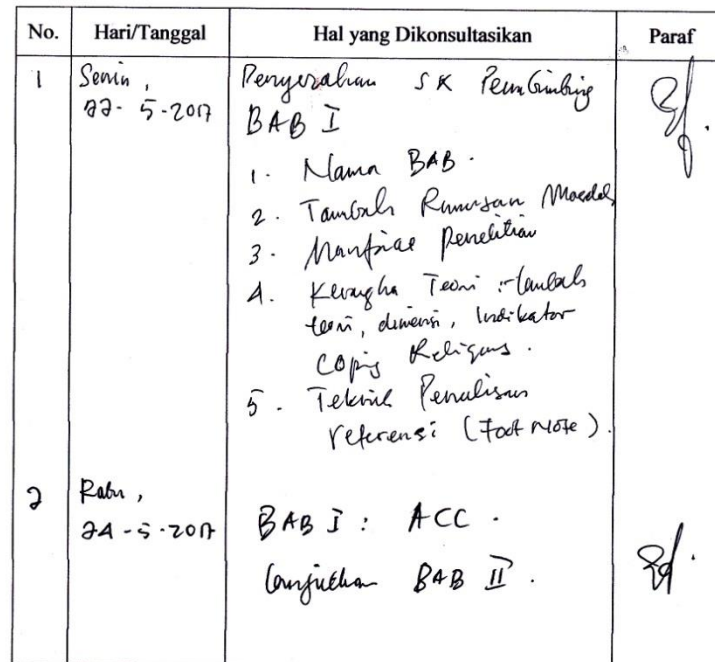 No. Hari/Tanggal Hal yang Dikonsultasikan Paraf
1 Senin, Penyerahan SK Pembimbing
22-5-2017 BAB I
1. Nama BAB.
2. Tambah Rumusan Masalah
3. Manfaat Penelitian
4. Kerangka Teori : tambah
teori, dimensi, Indikator
Coping Religius.
5. Teknik Penulisan
referensi (Foot Note).
2 Rabu,
24-5-2017 BAB I : ACC.
Lanjutkan BAB II.